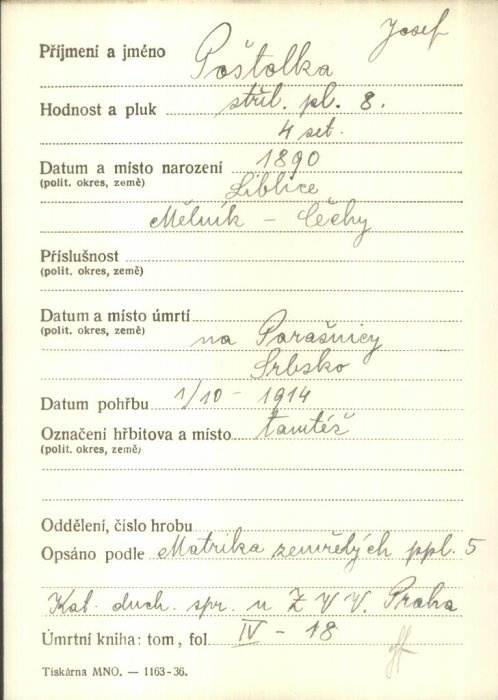 Josef
Příjmení a jméno Poštolka
Hodnost a pluk střl. pl. 8.
4 set.
Datum a místo narození 1890
(polit. okres, země) Liblice
Mělník - Čechy
Příslušnost
(polit. okres, země)
Datum a místo úmrtí
(polit. okres, země) na Parašnicy
Srbsko
Datum pohřbu 1/10 - 1914
Označení hřbitova a místo tamtéž
(polit. okres, země)
Oddělení, číslo hrobu
Opsáno podle Matrika zemřelých ppl. 5
Kat. duch. spr. u Z V V. Praha
Úmrtní kniha: tom, fol. IV - 18
Tiskárna MNO. — 1163-36.